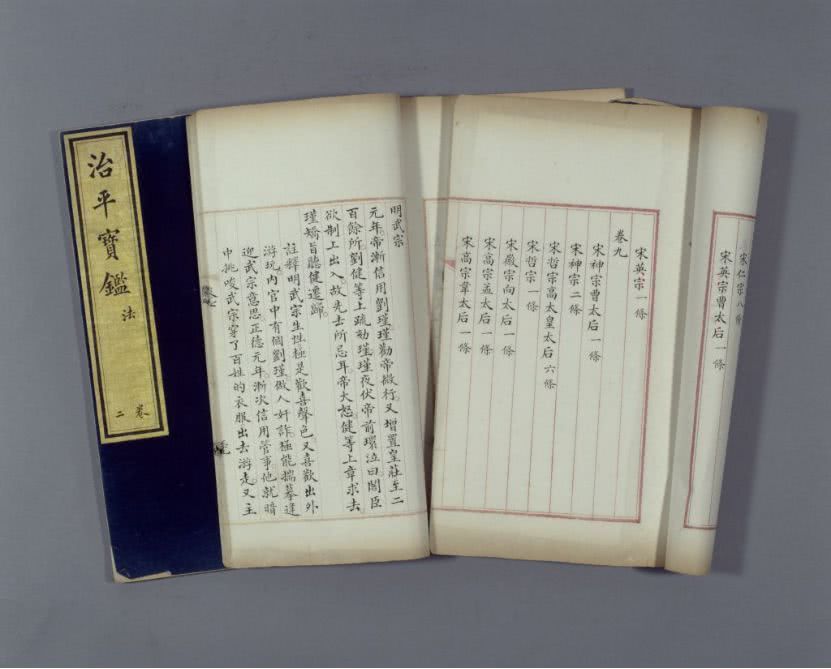 治平寶鑑
法
卷二
宋仁宗八條
宋英宗曹太后一條
宋英宗一條
卷九
宋神宗曹太后一條
宋神宗二條
宋哲宗高太皇太后六條
宋哲宗一條
宋徽宗向太后一條
宋高宗孟太后一條
宋高宗韋太后一條
明武宗
元年帝漸信用劉瑾瑾勸帝微行又增置皇莊至二
百餘所劉健等上疏劾瑾瑾夜伏帝前環泣曰閣臣
欲制上出入故先去所忌耳帝大怒健等上章求去
瑾矯旨聽健遷歸
註釋明武宗生性極是歡喜聲色又喜歡出外
游玩内官中有個劉瑾做人奸詐極能揣摹逢
迎武宗意思正德元年漸次信用管事他就暗
中挑唆武宗穿了百姓的衣服出去游走又主